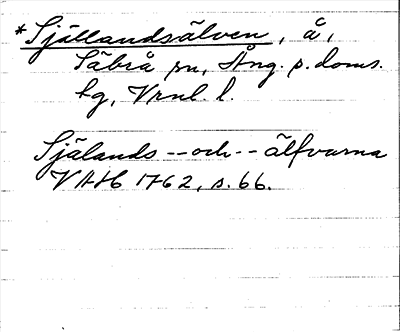 *Själlandsälven, å,
Säbrå sn, Ång. s. doms.
hg, Vrnl. l.
Själands -- och -- älfvarna
VAH 1762, s. 66.